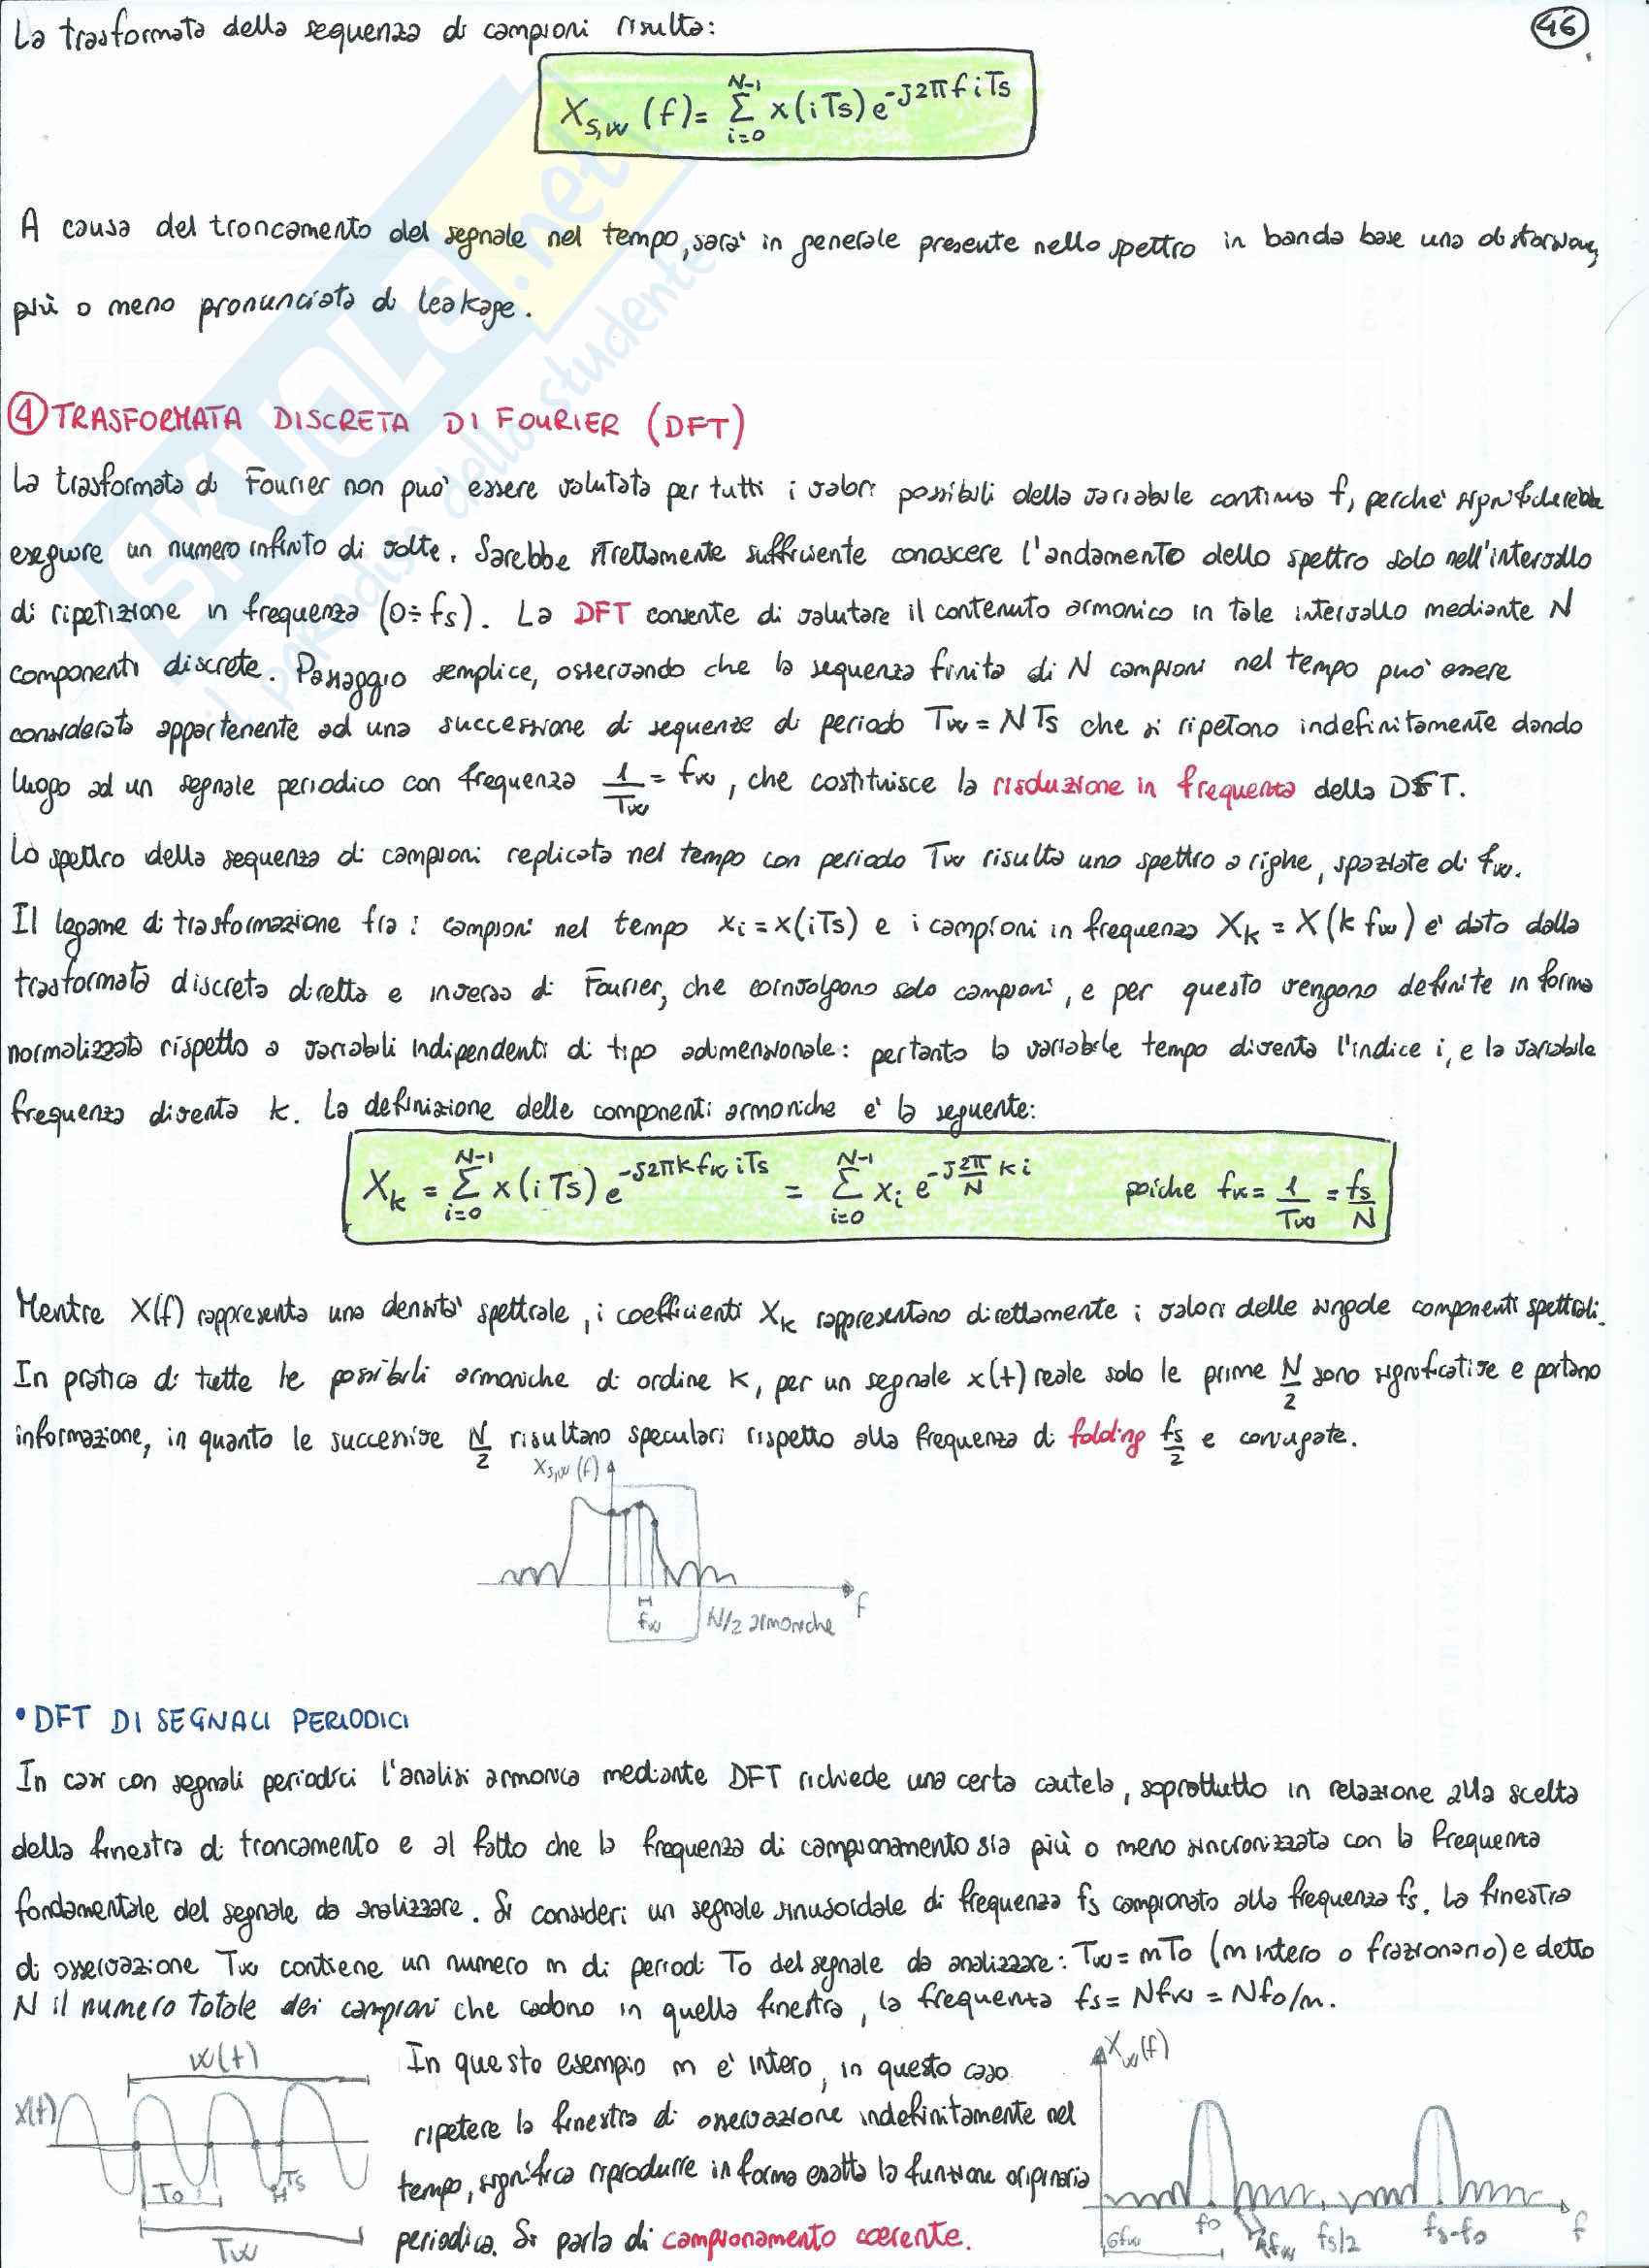 La trasformata della sequenza di campioni risulta:
46
X_{S,W}(f) = \sum_{i=0}^{N-1} x(iTs) e^{-J2πfiTs}
A causa del troncamento del segnale nel tempo, sara' in generale presente nello spettro in banda base una distorsione,
più o meno pronunciata di leakage.
④ TRASFORMATA DISCRETA DI FOURIER (DFT)
La trasformata di Fourier non puo' essere valutata per tutti i valori possibili della variabile continua f, perche' significherebbe
eseguire un numero infinito di volte. Sarebbe strettamente sufficiente conoscere l'andamento dello spettro solo nell'intervallo
di ripetizione in frequenza (0÷fs). La DFT consente di valutare il contenuto armonico in tale intervallo mediante N
componenti discrete. Passaggio semplice, osservando che la sequenza finita di N campioni nel tempo puo' essere
considerata appartenente ad una successione di sequenze di periodo Tw = NTs che si ripetono indefinitamente dando
luogo ad un segnale periodico con frequenza 1/Tw = fw, che costituisce la risoluzione in frequenza della DFT.
Lo spettro della sequenza di campioni replicata nel tempo con periodo Tw risulta uno spettro a righe, spaziate di fw.
Il legame di trasformazione fra i campioni nel tempo xi = x(iTs) e i campioni in frequenza Xk = X(k fw) e' dato dalla
trasformata discreta diretta e inversa di Fourier, che coinvolgono solo campioni, e per questo vengono definite in forma
normalizzata rispetto a variabili indipendenti di tipo adimensionale: pertanto la variabile tempo diventa l'indice i, e la variabile
frequenza diventa k. La definizione delle componenti armoniche e' la seguente:
X_k = \sum_{i=0}^{N-1} x(iTs) e^{-J2πkfwiTs} = \sum_{i=0}^{N-1} x_i e^{-J\frac{2π}{N}ki} poiche fw = 1/Tw = fs/N
Mentre X(f) rappresenta una densita' spettrale, i coefficienti Xk rappresentano direttamente i valori delle singole componenti spettrali.
In pratica di tutte le possibili armoniche di ordine k, per un segnale x(t) reale solo le prime N/2 sono significative e portano
informazione, in quanto le successive N/2 risultano speculari rispetto alla frequenza di folding fs/2 e coniugate.
X_{S,W}(f)
f
fw
N/2 armoniche
• DFT DI SEGNALI PERIODICI
In casi con segnali periodici l'analisi armonica mediante DFT richiede una certa cautela, soprattutto in relazione alla scelta
della finestra di troncamento e al fatto che la frequenza di campionamento sia più o meno sincronizzata con la frequenza
fondamentale del segnale da analizzare. Si consideri un segnale sinusoidale di frequenza fs campionato alla frequenza fs. La finestra
di osservazione Tw contiene un numero m di periodi To del segnale da analizzare: Tw = mTo (m intero o frazionario) e detto
N il numero totale dei campioni che cadono in quella finestra, la frequenza fs = Nfw = Nfo/m.
w(t)
x(t)
To
Ts
Tw
In questo esempio m e' intero, in questo caso
ripetere la finestra di osservazione indefinitamente nel
tempo, significa riprodurre in forma esatta la funzione originaria
periodica. Si parla di campionamento coerente.
Xw(f)
fo
fs/2
fs-fo
f
6fw
SKUOLA.net
il paradiso dello studente